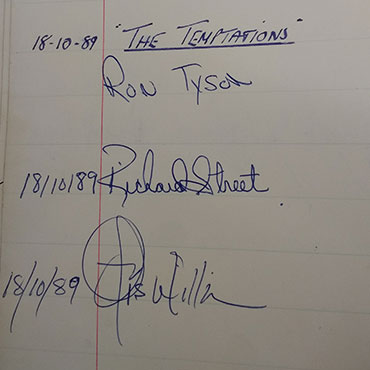 18-10-89 "THE TEMPTATIONS"
Ron Tyson
18/10/89 Richard Street
18/10/89 Otis Willi